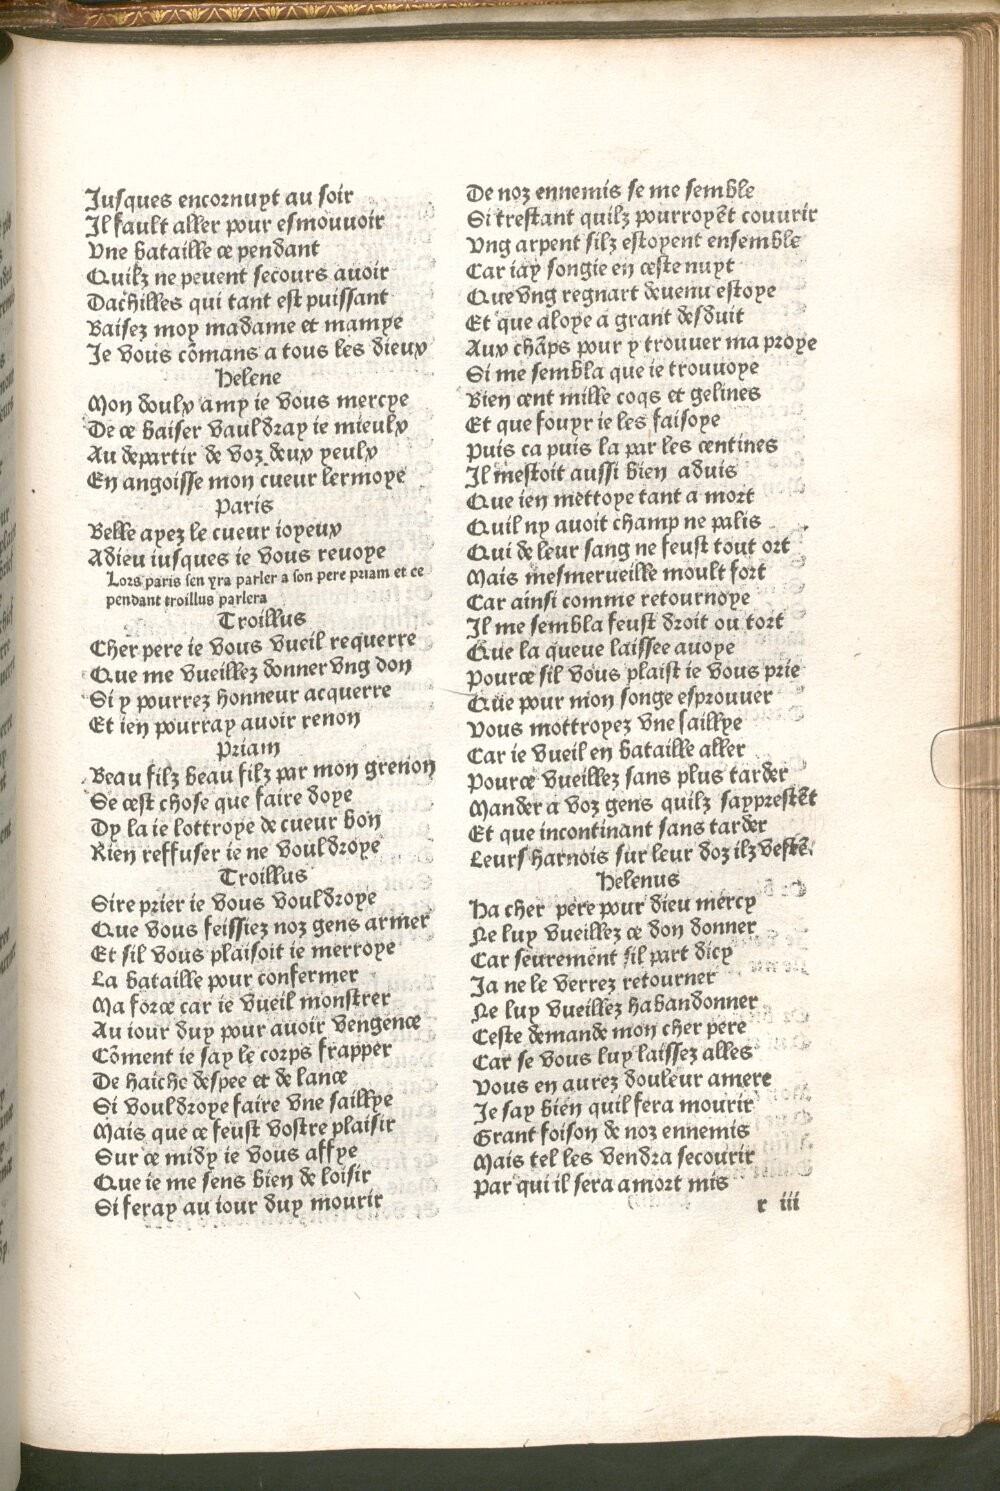 Jusques encornuyt au soir
Il fault aller pour esmouuoir
Vne bataille ce pendant
Quilz ne peuent secours auoir
Dachilles qui tant est puissant
Baisez moy madame et mamye
Je vous cõmans a tous les dieux
Helene
Mon doulx amy ie vous mercye
De ce baiser vauldray ie mieulx
Au departir de voz deux yeulx
En angoisse mon cueur lermoye
Paris
Belle ayez le cueur ioyeux
Adieu iusques ie vous reuoye
Lors paris sen yra parler a son pere priam et ce
pendant troillus parlera
Troillus
Cher pere ie vous vueil requerre
Que me vueillez donner vng don
Si y pourrez honneur acquerre
Et ien pourray auoir renon
Priam
Beau filz beau filz par mon grenon
Se cest chose que faire doye
Dy la ie lottroye de cueur bon
Rien reffuser ie ne vouldroye
Troillus
Sire prier ie vous vouldroye
Que vous feissiez noz gens armer
Et sil vous plaisoit ie merroye
La bataille pour confermer
Ma force car ie vueil monstrer
Au iour duy pour auoir vengence
Cõment ie say le corps frapper
De haiche despee et de lance
Si vouldroye faire vne saillye
Mais que ce feust vostre plaisir
Sur ce midy ie vous affye
Que ie me sens bien de loisir
Si feray au iour duy mourir
De noz ennemis se me semble
Si trestant quilz pourroyẽt couurir
Vng arpent silz estoyent ensemble
Car iay songie en ceste nuyt
Que vng regnart deuenu estoye
Et que aloye a grant desduit
Aux chãps pour y trouuer ma proye
Si me sembla que ie trouuoye
Bien cent mille coqs et gelines
Et que fouyr ie les faisoye
Puis ca puis la par les centines
Il mestoit aussi bien aduis
Que ien mettoye tant a mort
Quil ny auoit champ ne palis
Qui de leur sang ne feust tout ort
Mais mesmerueille moult fort
Car ainsi comme retournoye
Il me sembla feust droit ou tort
Que la queue laissee auoye
Pource sil vous plaist ie vous prie
Que pour mon songe esprouuer
Vous mottroyez vne saillye
Car ie vueil en bataille aller
Pource vueillez sans plus tarder
Mander a voz gens quilz sapprestẽt
Et que incontinant sans tarder
Leurs harnois sur leur doz ilz vestẽt
Helenus
Ha cher pere pour dieu mercy
Ne luy vueillez ce don donner
Car seurement sil part dicy
Ja ne le verrez retourner
Ne luy vueillez habandonner
Ceste demande mon cher pere
Car se vous luy laissez alles
Vous en aurez douleur amere
Je say bien quil fera mourir
Grant foison de noz ennemis
Mais tel les vendra secourir
Par qui il sera amort mis
r iii